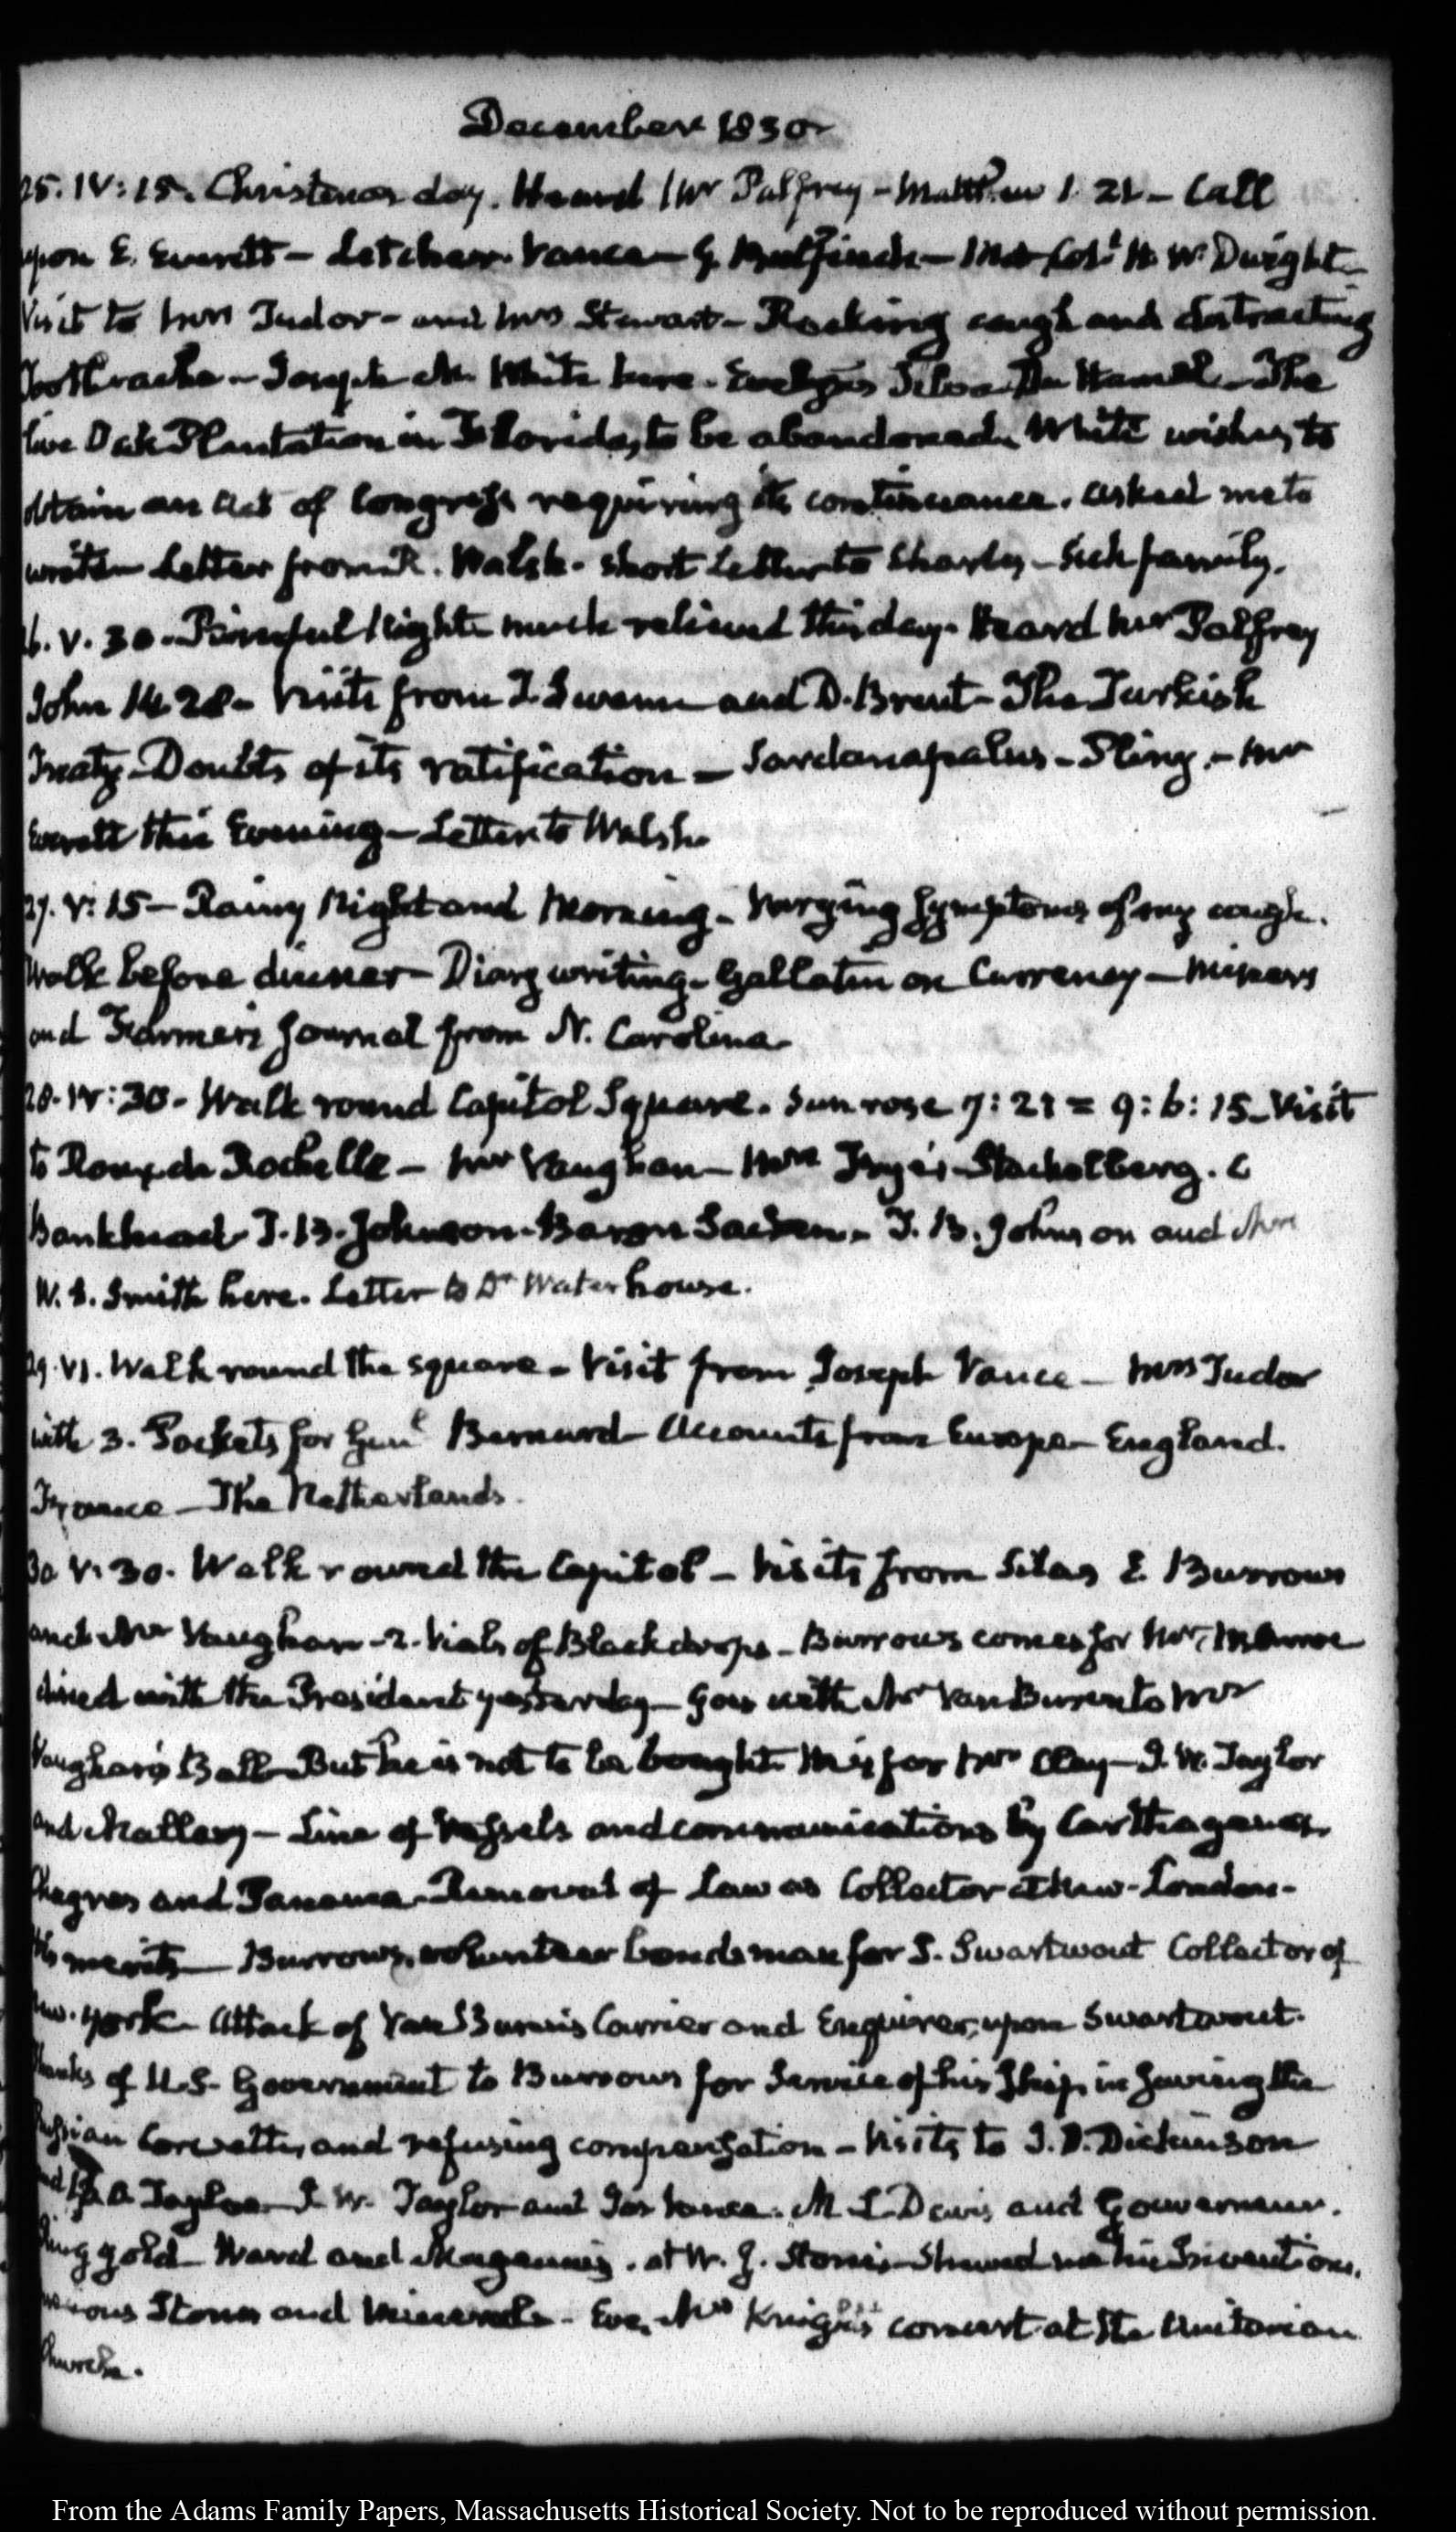 December 1830
25. IV: 15. Christmas day. Heard Mr Palfrey – Matthew 1. 21 – Call
upon E. Everett – Letcher. Vance – G. Bulfinch – Met Col.l H. W. Dwight –
Visit to Mrs Tudor – and Mrs Stewart – Racking cough and distracting
Toothache – Joseph M. White here. The
live Oak Plantation in Florida, to be abandoned. White wishes to
obtain an Act of Congress requiring its continuance. asked me to
write – Letter from R. Walsh – short Letter to Charles – Sick family.
26. V. 30. Painful Night – much relieved this day. Heard Mr Palfrey
John 14. 28 – Visits from T. Swann and D. Brent – The Turkish
Treaty – Doubts of its ratification – Sardanapalus – Pliny. – Mr
Everett this Evening – Letter to Walsh.
27. V: 15 – Rainy Night and Morning – Varying symptoms of my cough.
Walk before dinner – Diary writing – Gallatin on Currency – Miners
and Farmers Journal from N. Carolina –
28. IV: 30. Walk round Capitol Square. Sun rose 7: 21 = 9: 6: 15 – Visit
to Roux de Rochelle – Mr Vaughan – Mrs Frye's – Stackelberg. C
Bankhead – J. B. Johnson – Baron Sacken – J. B. Johnson and Mr
W. S. Smith here. Letter to Dr Waterhouse.
29. VI. Walk round the square – Visit from Joseph Vance – Mrs Tudor
with 3. Packets for Genl Bernard – Accounts from Europe – England.
France – The Netherlands.
30 V: 30. Walk round the Capitol – Visits from Silas E. Burrows
and Mr Vaughan – 2. Vials of Black drops – Burrows comes for Mr Monroe
dined with the President yesterday – goes with Mr Van Buren to Mr
Vaughan's Ball – But he is not to be bought. He is for Mr Clay – J. W. Taylor
and Mallary – Line of Vessels and communications by Carthagena,
Chagres and Panama – Removal of Law as Collector at New-London –
His merits – Burrows, volunteer bondsman for S. Swartwout Collector of
New-York – Attack of Van Buren's Courier and Enquirer, upon Swartwout.
Thanks of U.S. Government to Burrows for Service of his Ship, in saving the
Russian Corvette, and refusing compensation – Visits to J. D. Dickinson
and J. W. Taylor and Jos Vance. M L Davis and Gouverneur.
Ringgold – Ward and at W. J. Stone's – Shewed me his Invention,
various Stones and Minerals – Eve, Mrs Knight's concert at the Unitarian
Church.
From the Adams Family Papers, Massachusetts Historical Society. Not to be reproduced without permission.